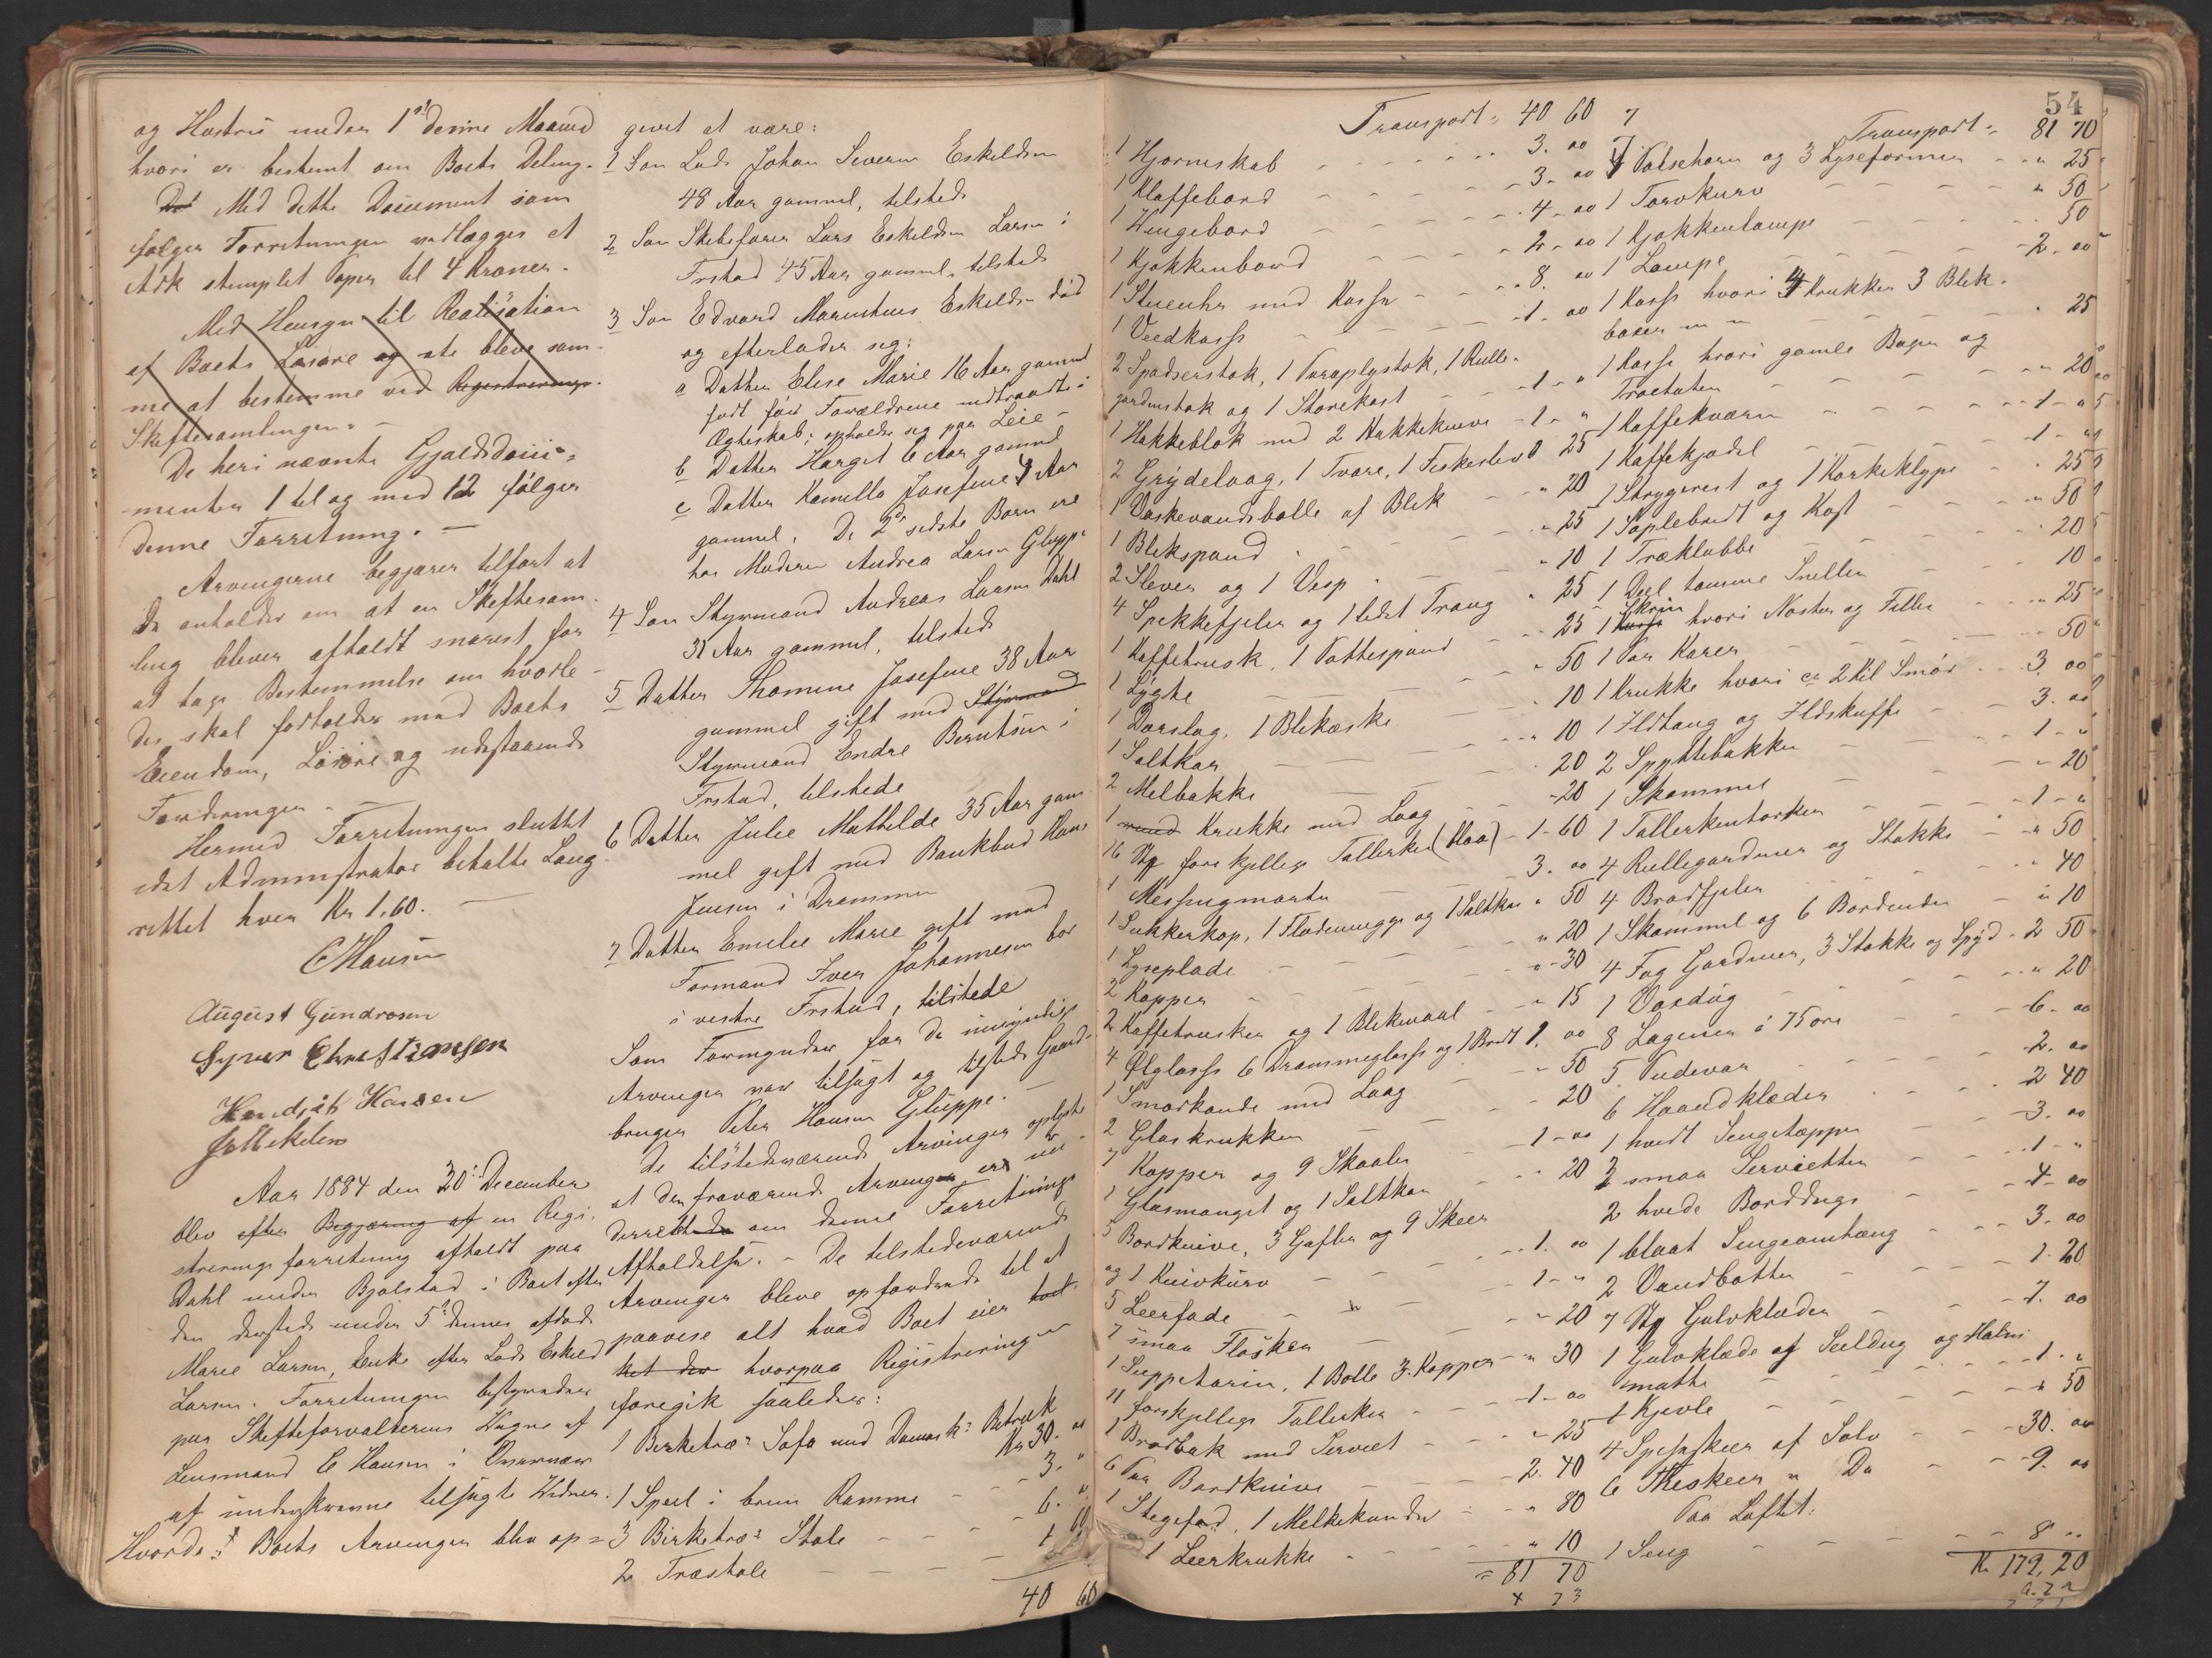 og Hustru under 1ste denne Maaned
hvori er bestemt om Boets Deling.
Med dette Document som
følger Forretningen vedlægges et
Ark stemplet Papir til 4 Kroner.
Med Hensyn til Realisation
af Boets Løsøre og ste bleve sam-
me at bestemme ved Registrerings-
Skiftesamlingen. -
De heri nævnte Gjældsdocu-
menter 1 til og med 12 følger
denne Forretning. -
Arvingerne begjærer tilført at
de anholder om at en Skiftesam-
ling bliver afholdt snarest for
at tage Bestemmelse om hvorle-
des skal forholdes med Boets
Eiendom, Løsøre og udestaaende
Fordringer. -
Hermed Forretningen sluttet
idet Administrator betalte Laug-
rettet hver Kr 1,60. -
C Hansen
August Gundrosen
Syver Christiansen
Hendrik Hansen
Aar 1884 den 20de December
blev efter Begjæring af en Regi-
streringsforretning afholdt paa
Dahl under Bjølstad i Boet efter
den dersteds under 5te dennes afdøde
Marie Larsen, Enke efter Lods Eskild
Larsen. Forretningen bestyredes
paa Skifteforvalterens Vegne af
Lensmand C Hansen i Overvær
af underskrevne tilsagte Vidner.
Hvorda Boets Arvinger blev op=
givet at være:
1 Søn Lods Johan Severin Eskildsen
48 Aar gammel, tilstede
2 Søn Skibsfører Lars Eskildsen Larsen i
Frstad 45 Aar gammel, tilstede
3 Søn Edvard Marentius Eskildsen død
og efterlader sig:
a Datter Elise Marie 16 Aar gammel
født før Forældrene indtraadte i
Ægteskab; opholder sig paa Leie -
b Datter Harget 6 Aar gammel
c Datter Kamilla Josefine 4 Aar
gammel. De 2de sidste Børn ere
hos Moderen Andrea Larsen Gluppe
4 Søn Styrmand Andreas Larsen Dahl
31 Aar gammel, tilstede
5 Datter Thomine Josefine 38 Aar
gammel gift med Styrmand
Styrmand Endre Berntsen i
Frstad, tilstede
6 Datter Julie Mathilde 35 Aar gam-
mel gift med Bankbud Hans
Jensen i Drammen
7 Datter Emilie Marie gift med
Formand Iver Johannesen bor
i vestre Frstad, tilstede
Som Formynder for de umyndige
Arvinger var tilsagt og tilstede Gaard-
bruger Peter Hansen Gluppe. -
De tilstedeværende Arvinger oplyste
at den fraværende Arving er un-
derrettede om denne Forretnings
Afholdelse. - De tilstedeværende
Arvinger bleve opfordrede til at
paavise alt hvad Boet eier
hvorpaa Registreringen
foregik saaledes:
1 Birketræs Sofa med Damasks Betræk Kr 30. "
1 Speil i brun Ramme - - 3. "
3 Birketræs Stole - - - 6. "
2 Træstole - - - 1 60
40 60
54
Transport = 40 60
1 Hjørneskab - - - 3. 00
1 Klaffebord - - - 3- 00
1 Hengebord - - - 4- 00
1 Kjøkkenbord - - - 2- 00
1 Stueuhr med Kasse - - 8. 00
1 Veedkasse - - - 1. 00
2 Spadserstok, 1 Paraplystok, 1 Rulle-
gardinstok og 1 Storekost - - 1- "
1 Hakkeblok med 2 Hakkeknive - 1- "
2 Grydelaag, 1 Tvare, 1 Fiskeslev 0 25
1 Vaskevandsbolle af Blik - " 20
1 Blikspand - - - " 25
2 Slever og 1 Visp - - - " 10
4 Spekkefjeler og 1 lidet Traug " 25
1 Kaffetrusk, 1 Pottespand - " 25
1 Lygte - - - " 50
1 Dørslag, 1 Blikæske - - - " 10
1 Saltkar - - - " 10
2 Melbakke - - - 20
1 Krukke med Laag - - 20
16 Stk forskjellige Tallerker (blaa) - 1- 60
1 Messingmorter - - - 3. 00
1 Sukkerkop, 1 Flødemugge og 1 Saltkar " 50
1 Lyseplade - - - " 20
2 Kopper - - - " 30
2 Kaffetrusker og 1 Blikmaal - " 15
4 Ølglasse 6 Dramme glasse og 1 Bret 1. 00
1 Smørkande med Laag - - " 50
2 Glaskrukker - - - 20
7 Kopper og 9 Skaaler - - 1- 00
1 Glasmanget og 1 Saltkar - - 20
5 Bordknive, 3 Gafler og 9 Skeer
og 1 Knivkurv - - - 1. 00
5 Leerfade - - - 1- "
7 smaa Flasker - - - " 20
1 Suppeterin, 1 Bolle 3 Kopper - " 30
11 forskjellige Tallerker - - 1- 00
1 Brødbak med Serviet - - " 25
6 Par Bordknive - - - 2. 40
1 Stegefad, 1 Melkekande - - " 80
1 Leerkrukke - - - " 10
= 81 70
Transport = 81 70
1 Valsehorn og 3 Lyseformer - - " 25
1 Torvkurv - - - " 50
1 Kjøkkenlampe - - - 50
1 Lampe - - - 2- 00
1 Kasse hvori 4 Krukker 3 Blik-
boxer m m - - - 25
1 Kasse hvori gamle Bøger og
Traktater - - - " 20
1 Kaffekværn - - - 1- "
1 Kaffekjedel - - - 1- "
1 Strygerist og 1 Korkeklype - " 25
1 Søplebredt og Kost - - " 50
1 Træklubbe - - - 20
1 Deel tomme Sneller - - 10
1 Skrin hvori Nøster og Filler - - " 25
1 Par Karer - - - 50
1 Krukke hvori ca 2 Kil Smør - - 3. 00
1 Ildtang og Ildskuffe - - 3. 00
2 Spyttebakker - - - 1- "
1 Skammel - - - " 20
1 Tallerkentørker - - - 1- "
4 Rullegardiner og Stokke - " 50
4 Brødfjeler - - - " 40
1 Skammel og 6 Bordender - " 10
4 Fag Gardiner, 3 Stokke og Spyd - 2 50
1 Voxdug - - - " 20
8 Lagener á 75 øre - - 6. 00
5 Pudevar - - - 2. 00
6 Haandklæder - - - 2 40
1 hvidt Sengetæppe - - 3. 00
3 smaa Servietter - - 1- "
2 hvide Bordduge - - 4- 00
1 blaat Sengeomhæng - - 3. 00
2 Vandbøtter - - - 1. 20
7 Stk Gulvklæder - - 7. 00
1 Gulvklæde af Seildug og Halm-
matte - - - 1. "
1 Kjevle - - - " 50
4 Spiseskeer af Sølv - - 30. 00
6 Theskeer " Do - - 9. 00
Paa Loftet:
1 Seng - - - 8 "
Kr. 179,20